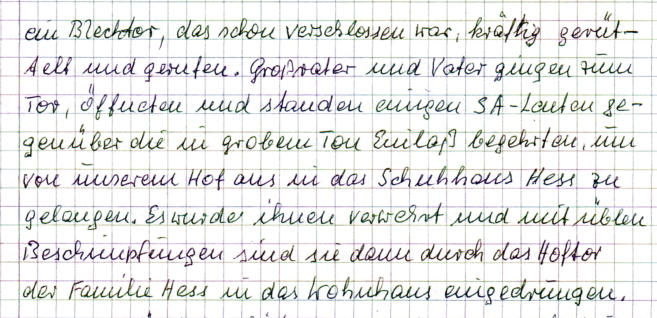 ein Blechtor, das schon verschlossen war, kräftig gerüt-
telt und gerufen. Großvater und Vater gingen zum
Tor, öffneten und standen einigen SA-Leuten ge-
genüber die in grobem Ton Einlaß begehrten, um
von unserem Hof aus in das Schuhhaus Hess zu
gelangen. Es wurde ihnen verwehrt und mit üblen
Beschimpfungen sind sie dann durch das Hoftor
der Familie Hess in das Wohnhaus eingedrungen.